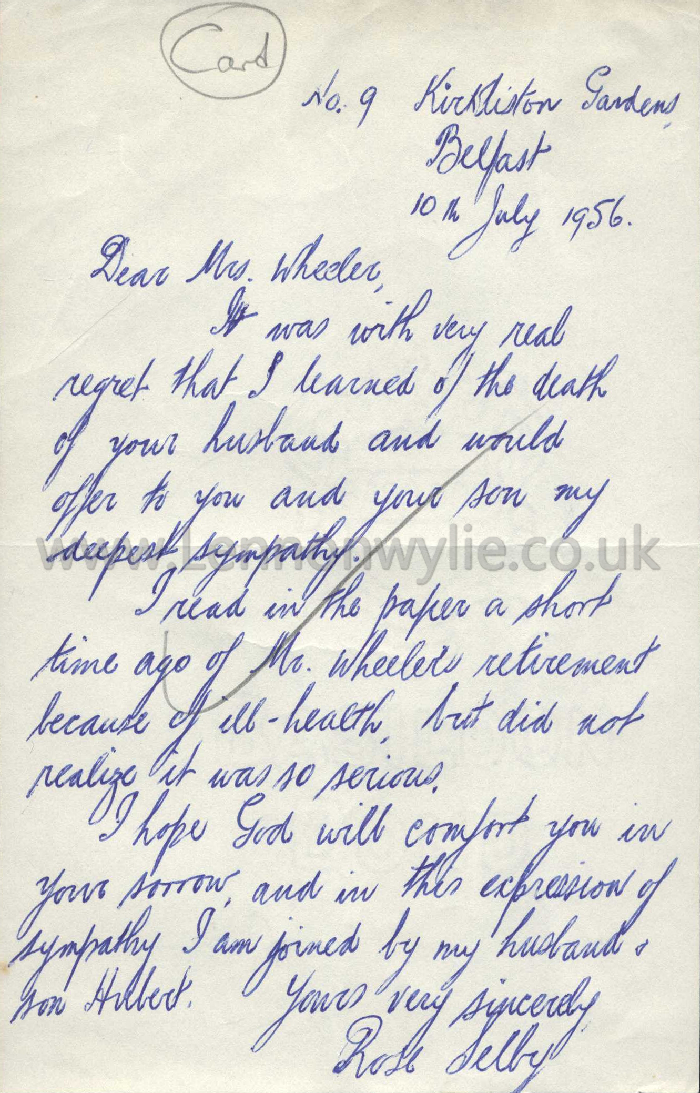 Card
No. 9 Kirkliston Gardens,
Belfast
10th July 1956.
Dear Mrs. Wheeler,
It was with very real
regret that I learned of the death
of your husband and would
offer to you and your son my
deepest sympathy.
www.Lennonwylie.co.uk
I read in the paper a short
time ago of Mr. Wheeler's retirement
because of ill-health, but did not
realize it was so serious.
I hope God will comfort you in
your sorrow, and in this expression of
sympathy I am joined by my husband &
son
Yours very sincerely,
Rose Selby